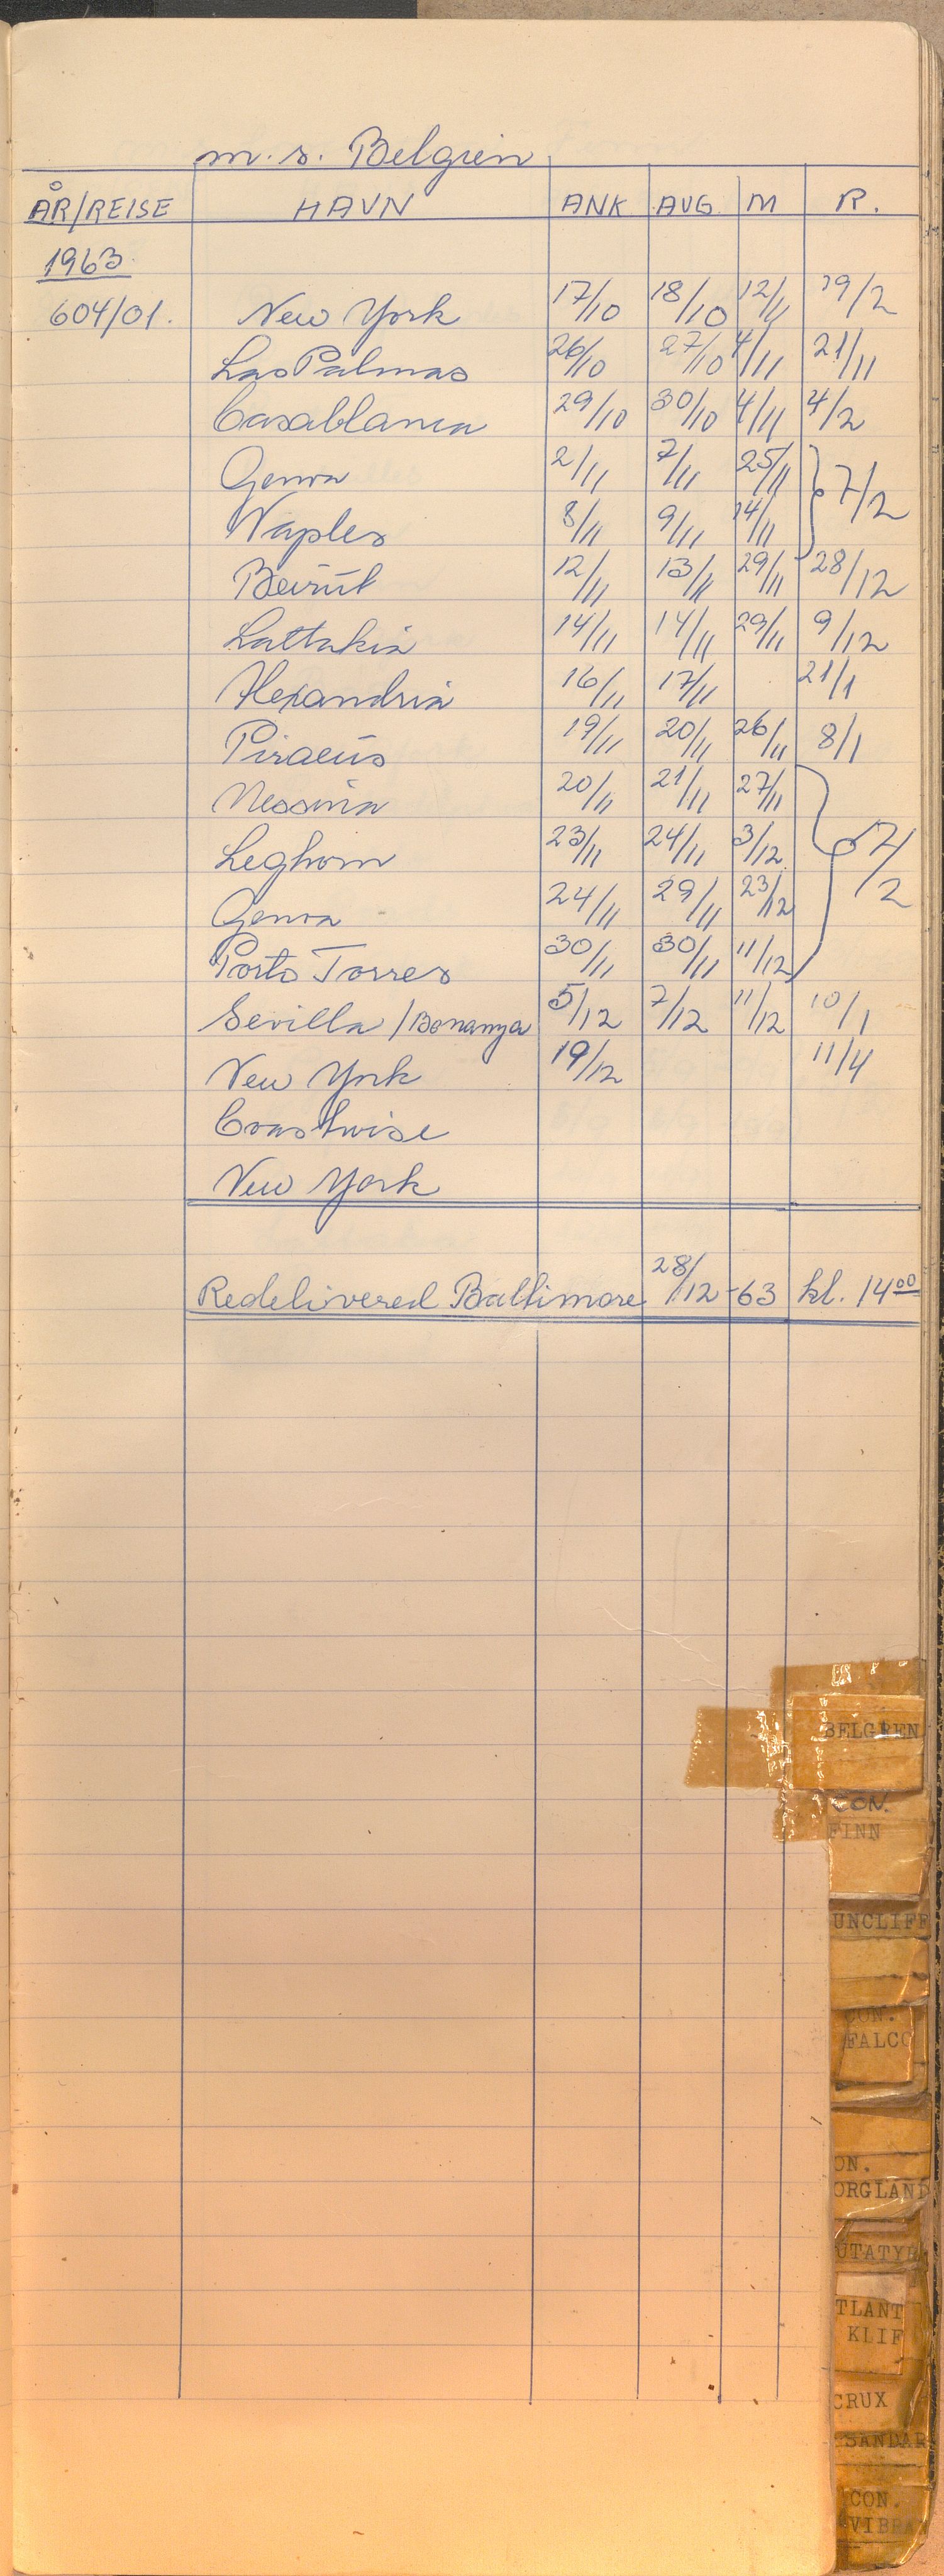 m.s. Belgrien
ÅR/REISE HAVN ANK AVG. M R.
1963.
604/01. New York 17/10 18/10 12/11 19/2
Las Palmas 26/10 27/10 4/11 21/11
Casablanca 29/10 30/10 4/11 4/2
Genoa 2/11 7/11 25/11
Naples 8/11 9/11 14/11 7/2
Beirut 12/11 13/11 29/11 28/12
Lattakia 14/11 14/11 29/11 9/12
Alexandria 16/11 17/11 21/1
Piraeus 19/11 20/11 26/11 8/1
Messina 20/11 21/11 27/11
Leghorn 23/11 24/11 3/12 7/2
Genoa 24/11 29/11 23/12
Porto Torres 30/11 30/11 11/12
Sevilla /Bonanza 5/12 7/12 11/12 10/1
New York 19/12 11/4
Coastwise
New York
Redelivered Baltimore 28/12-63 kl. 14⁰⁰
BELGREN
CON.
FINN
UNCLIFF
CON.
FALCO
ON.
ORGLAND
UTATYR
TLANT
KLIF
CRUX
SANDAR
CON.
VIBRAN